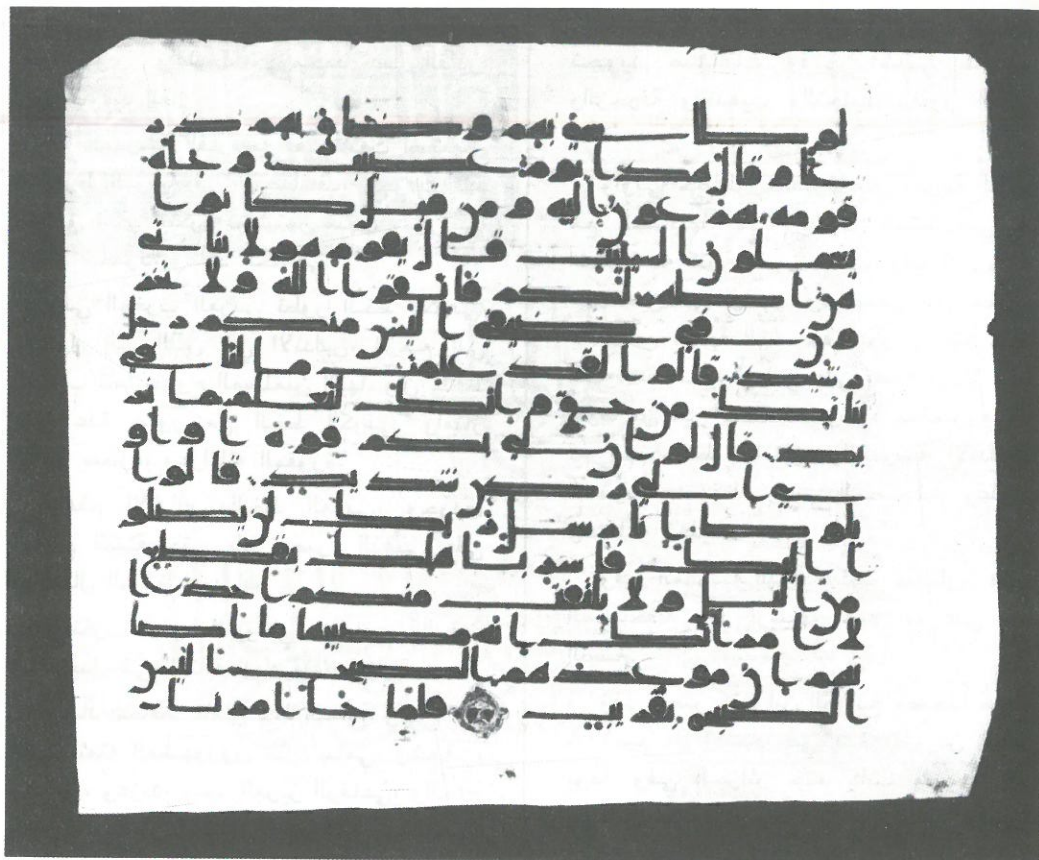 لوطا سىء بهم وضاق بهم ذر
عا وقال هذا يوم عصيب وجاه
قومه يهرعون اليه ومن قبل كانوا
يعملون السيت قال يقوم هولا بناتى
هن اطهر لكم فاتقوا الله ولا تخز
ون في ضيفي اليس منكم رجل
رشيد قالوا لقد علمت ما لنا في
بناتك من حق وانك لتعلم ما نر
يد قال لو ان لي بكم قوة او او
ي الى ركن شديد قالوا
يلوط انا رسل ربك لن يصلو
ا اليك فاسر باهلك بقطع
من اليل ولا يلتفت منكم احد ا
لا امراتك انه مصيبها ما اصا
بهم ان موعدهم الصبح اليس
الصبح بقريب فلما جا امرنا